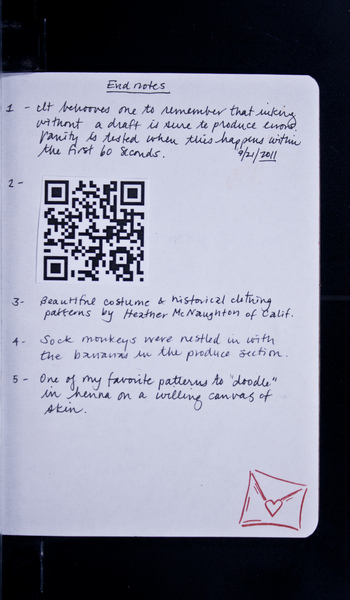 Endnotes
1 - It behooves one to remember that inking
without a draft is sure to produce errors.
Vanity is tested when this happens within
the first 60 seconds. 9/21/2011
2 -
3 - Beautiful costume & historical clothing
patterns by Heather McNaughton of Calif.
4 - Sock monkeys were nestled in with
the bananas in the produce section.
5 - One of my favorite patterns to "doodle"
in henna on a willing canvas of
skin.